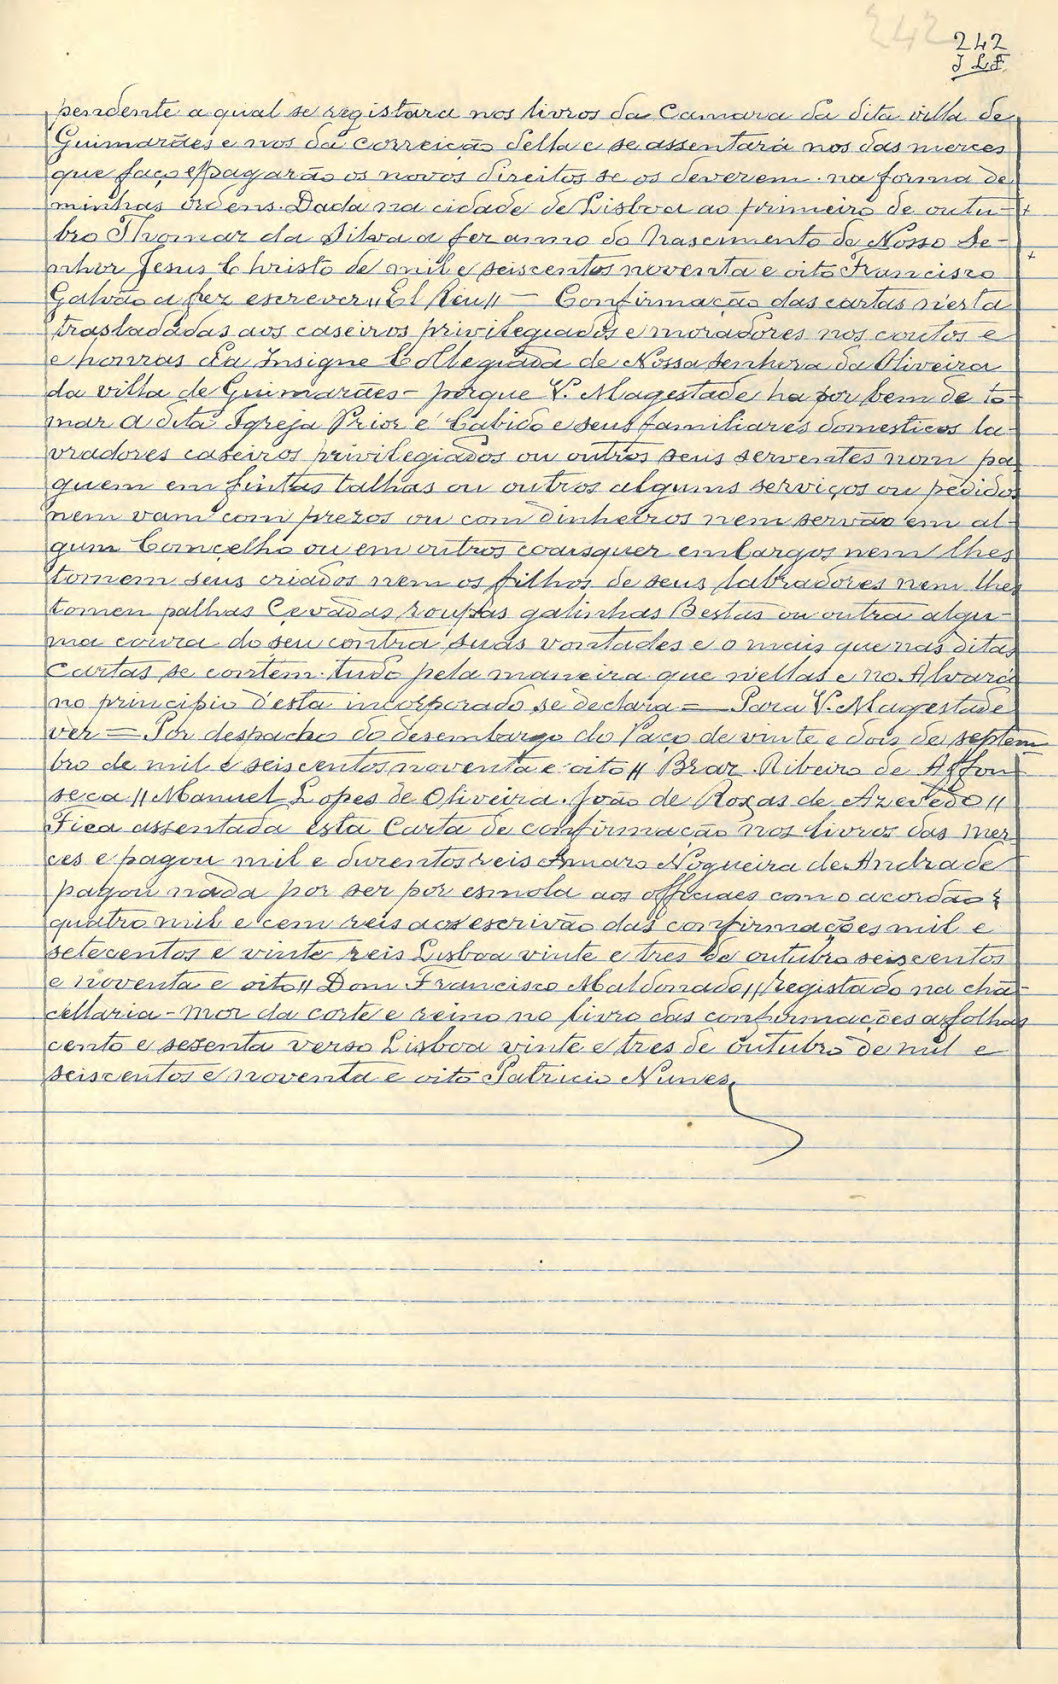 242
242
J L F
pendente a qual se registara nos livros da Camara da dita villa de
Guimarães e nos da correição della e se assentará nos das merces
que faço e pagarão os novos direitos se os deverem na forma de
minhas ordens. Dada na cidade de Lisboa ao primeiro de outu-
bro Thomaz da Silva a fez anno do Nascimento de Nosso Se-
nhor Jesus Christo de mil e seiscentos noventa e oito Francisco
Galvão a fez escrever // El Rei // — Confirmação das cartas n'esta
trasladadas aos caseiros privilegiados e moradores nos coutos e
e honras da Insigne Collegiada de Nossa Senhora da Oliveira
da villa de Guimarães - porque V. Magestade ha por bem de to-
mar a dita Igreja Prior e Cabido e seus familiares domesticos la-
vradores caseiros privilegiados ou outros seus serventes nom pa
guem em fintas talhas ou outros alguns serviços ou pedidos
nem vam com prezos ou com dinheiros nem servão em al-
gum Conçelho ou em outros coaisquer embargos nem lhes
tomem seus criados nem os filhos de seus labradores nem lhes
tomen palhas Çevadas roupas galinhas Bestas ou outra algu-
ma couza do seu contra suas vontades e o mais que nas ditas
Cartas se contem tudo pela maneira que n'ellas e no Alvará
no principio d'esta incorporado se declara = Para V. Magestade
ver = Por despacho do desembargo do Paço de vinte e dois de septem
bro de mil e seiscentos noventa e oito // Braz Ribeiro de Affon
seca // Manuel Lopes de Oliveira. João de Roxas de Azevedo //
Fica assentada esta Carta de confirmação nos livros das Mer
ces e pagou mil e duzentos reis Amaro Nogueira de Andrade
pagou nada por ser por esmola aos officiaes com o acordão
quatro mil e cem reis aos escrivão das confirmações mil e
setecentos e vinte reis Lisboa vinte e tres de outubro seiscentos
e noventa e oito // Dom Francisco Maldonado // registado na chã-
cellaria-mor da corte e reino no livro das confirmações a folhas
cento e sesenta verso Lisboa vinte e tres de outubro de mil e
seiscentos e noventa e oito Patricio Nunes